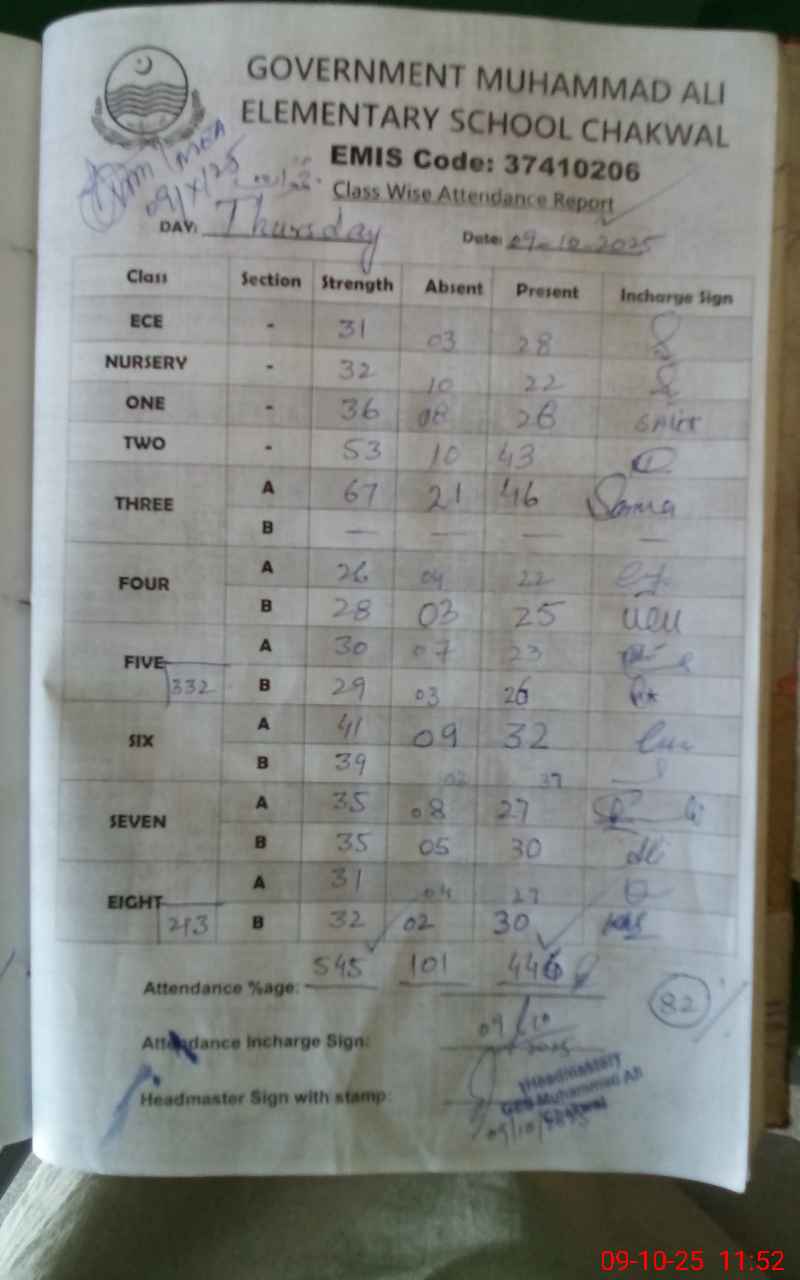 GOVERNMENT MUHAMMAD ALI
ELEMENTARY SCHOOL CHAKWAL
EMIS Code: 37410206
09/X/25
Class Wise Attendance Report
DAY: Thursday Date: 09-10-2025
Class Section Strength Absent Present Incharge Sign
ECE - 31 03 28
NURSERY - 32 10 22
ONE - 36 08 28
TWO - 53 10 43
THREE A 67 21 46
B — — — —
FOUR A 26 04 22
B 28 03 25
FIVE A 30 07 23
332 B 29 03 26
SIX A 41 09 32
B 39 02 37
SEVEN A 35 08 27
B 35 05 30
EIGHT A 31 04 27
213 B 32 02 30
545 101 446
Attendance %age: 82 %
09/10
2025
Attendance Incharge Sign:
Headmaster Sign with stamp:
Headmaster
Muhammad Ali
Chakwal
09/10/
09-10-25 11:52